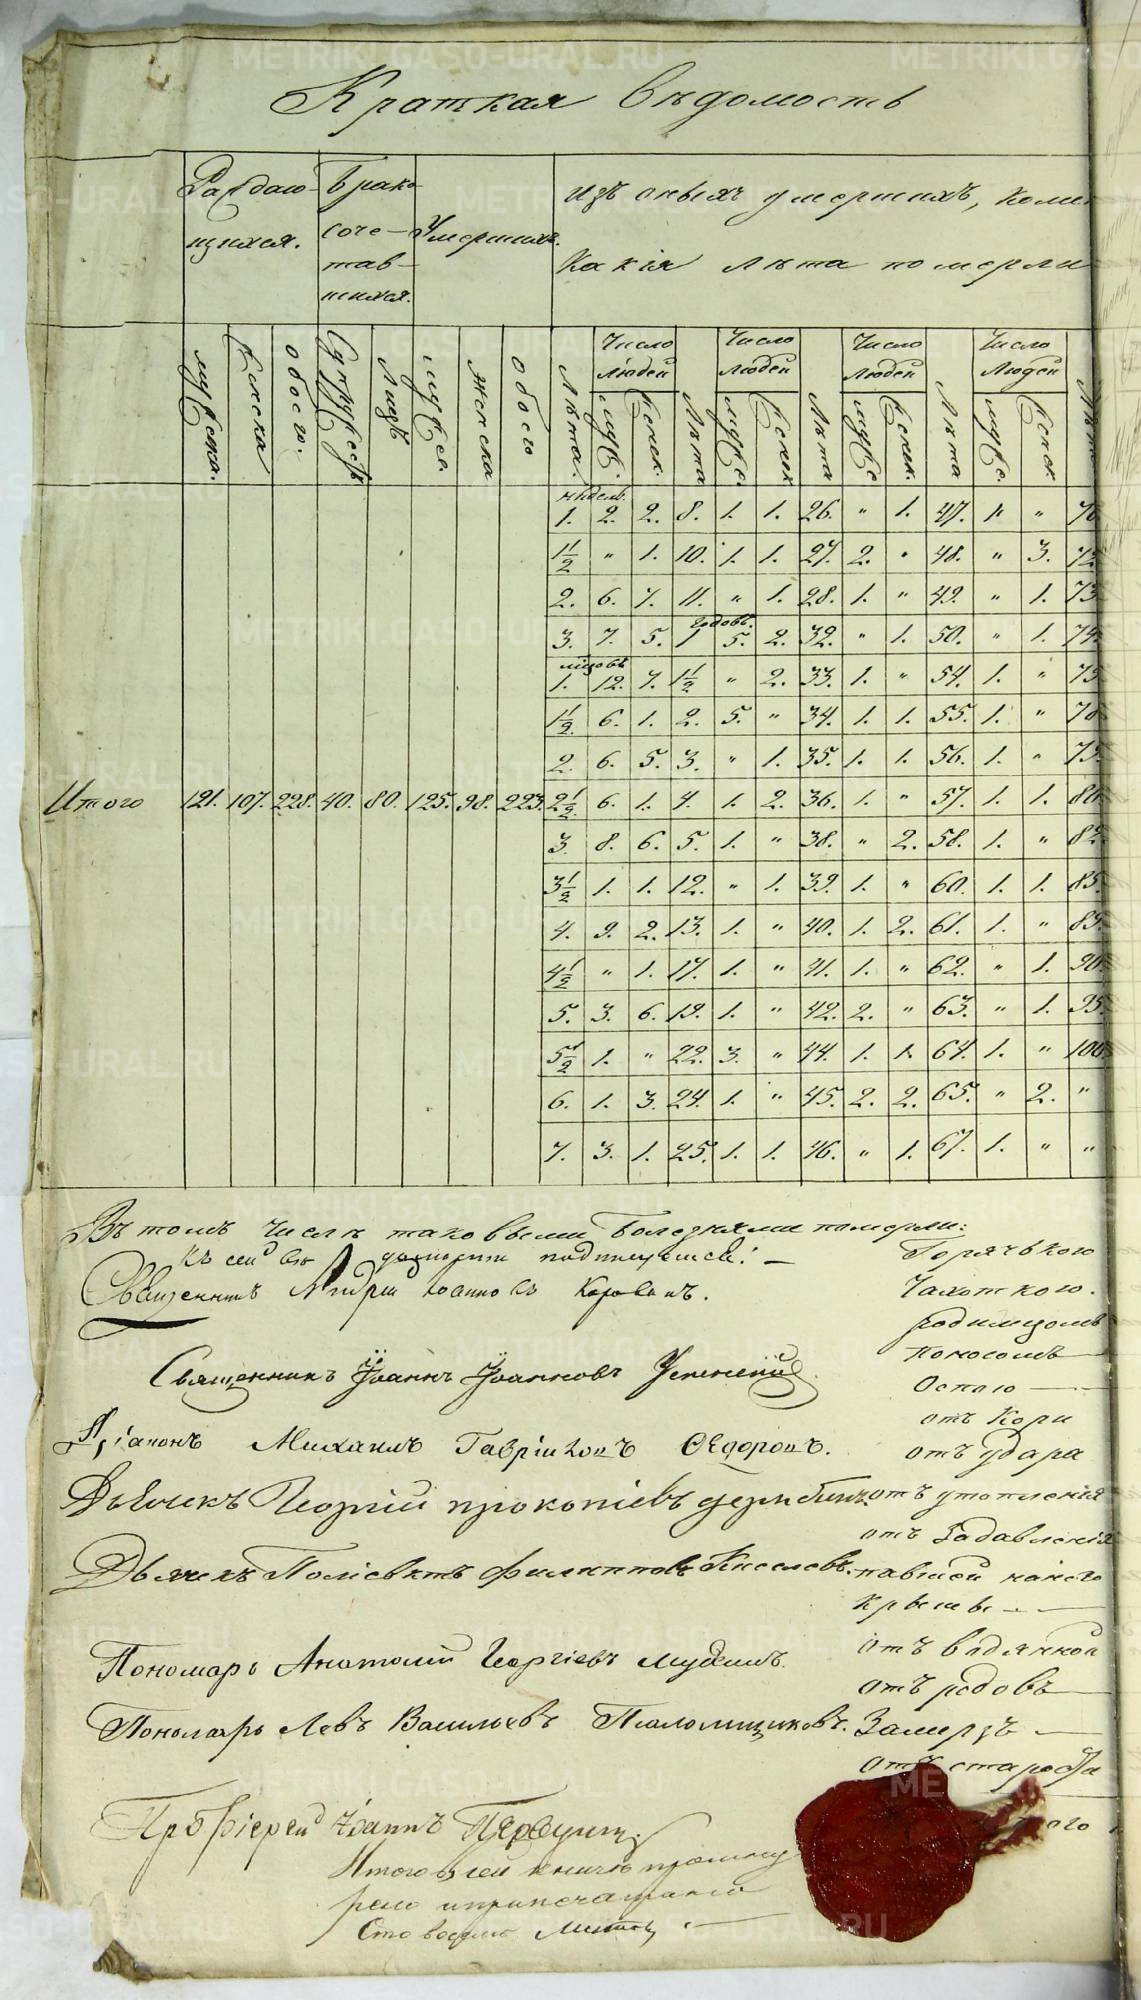 Краткая вѣдомость
Раждаю-
щихся.
Брако-
соче-
тав-
шихся.
Умершихъ.
Изъ оныхъ умершихъ, коли
какія лѣта померли
мужеска.
Женска
обоего.
Супружествъ
Лицъ
мужес.
Женска
обоего
Лѣта.
Число Людей
мужс.
Женск.
Лѣта
Число Людей
мужс.
Женск
Лѣта
Число Людей
мужс
Женск.
Лѣта
Число Людей
мужс.
Женск.
недель.
1. 2. 2. 8. 1. 1. 26. " 1. 47. " " 70
1½ " 1. 10. 1. 1. 27. 2. " 48. " 3. 72
2. 6. 7. 11. " 1. 28. 1. " 49. " 1. 73
годовъ.
3. 7. 5. 1 5. 2. 32. " 1. 50. " 1. 74
мѣсцовъ
1. 12. 7. 1½ " 2. 33. 1. " 54. 1. " 75
1½. 6. 1. 2. 5. " 34. 1. 1. 55. 1. " 78
2. 6. 5. 3. " 1. 35. 1. 1. 56. 1. "
Итого 121. 107. 228. 40. 80. 125. 98. 223. 2½. 6. 1. 4. 1. 2. 36. 1. " 57. 1. 1. 80
3. 8. 6. 5. 1. " 38. " 2. 58. 1. " 82
3½ 1. 1. 12. " 1. 39. 1. " 60. 1. 1. 85.
4. 9. 2. 13. 1. " 40. 1. 2. 61. 1. "
4½ " 1. 17. 1. " 41. 1. " 62. " 1. 90
5. 3. 6. 19. 1. " 42. 2. " 63. " 1. 95
5½ 1. " 22. 3. " 44. 1. 1. 64. 1. " 100
6. 1. 3. 24. 1. " 45. 2. 2. 65. " 2. "
7. 3. 1. 25. 1. 1. 46. " 1. 67. 1. " "
Въ томъ числѣ таковыми болезнями померли:
Къ сей вѣдомости подпишемся:
Священникъ Андрей Іоанновъ
Священникъ Іоаннъ Іоанновъ Успенскій
Діаконъ Михаилъ Гавріиловъ Ѳедоровъ.
Дьячекъ Георгій Прокопіевъ
Дьячекъ Поліевктъ Филипповъ Киселевъ.
Пономарь Анатолій Георгіевъ
Пономарь Левъ Васильевъ Псаломщиковъ.
Горячькою
Чахоткою.
родимцомъ
поносомъ
Оспою
отъ Кори
отъ удара
отъ утопленія
отъ задавленія
павшей на него
крыши
отъ водянной
отъ родовъ
Замерзъ
отъ старости
Протоіерей Іоаннъ
Итого въ сей книгѣ
Сто
METRIKI.GASO-URAL.RU